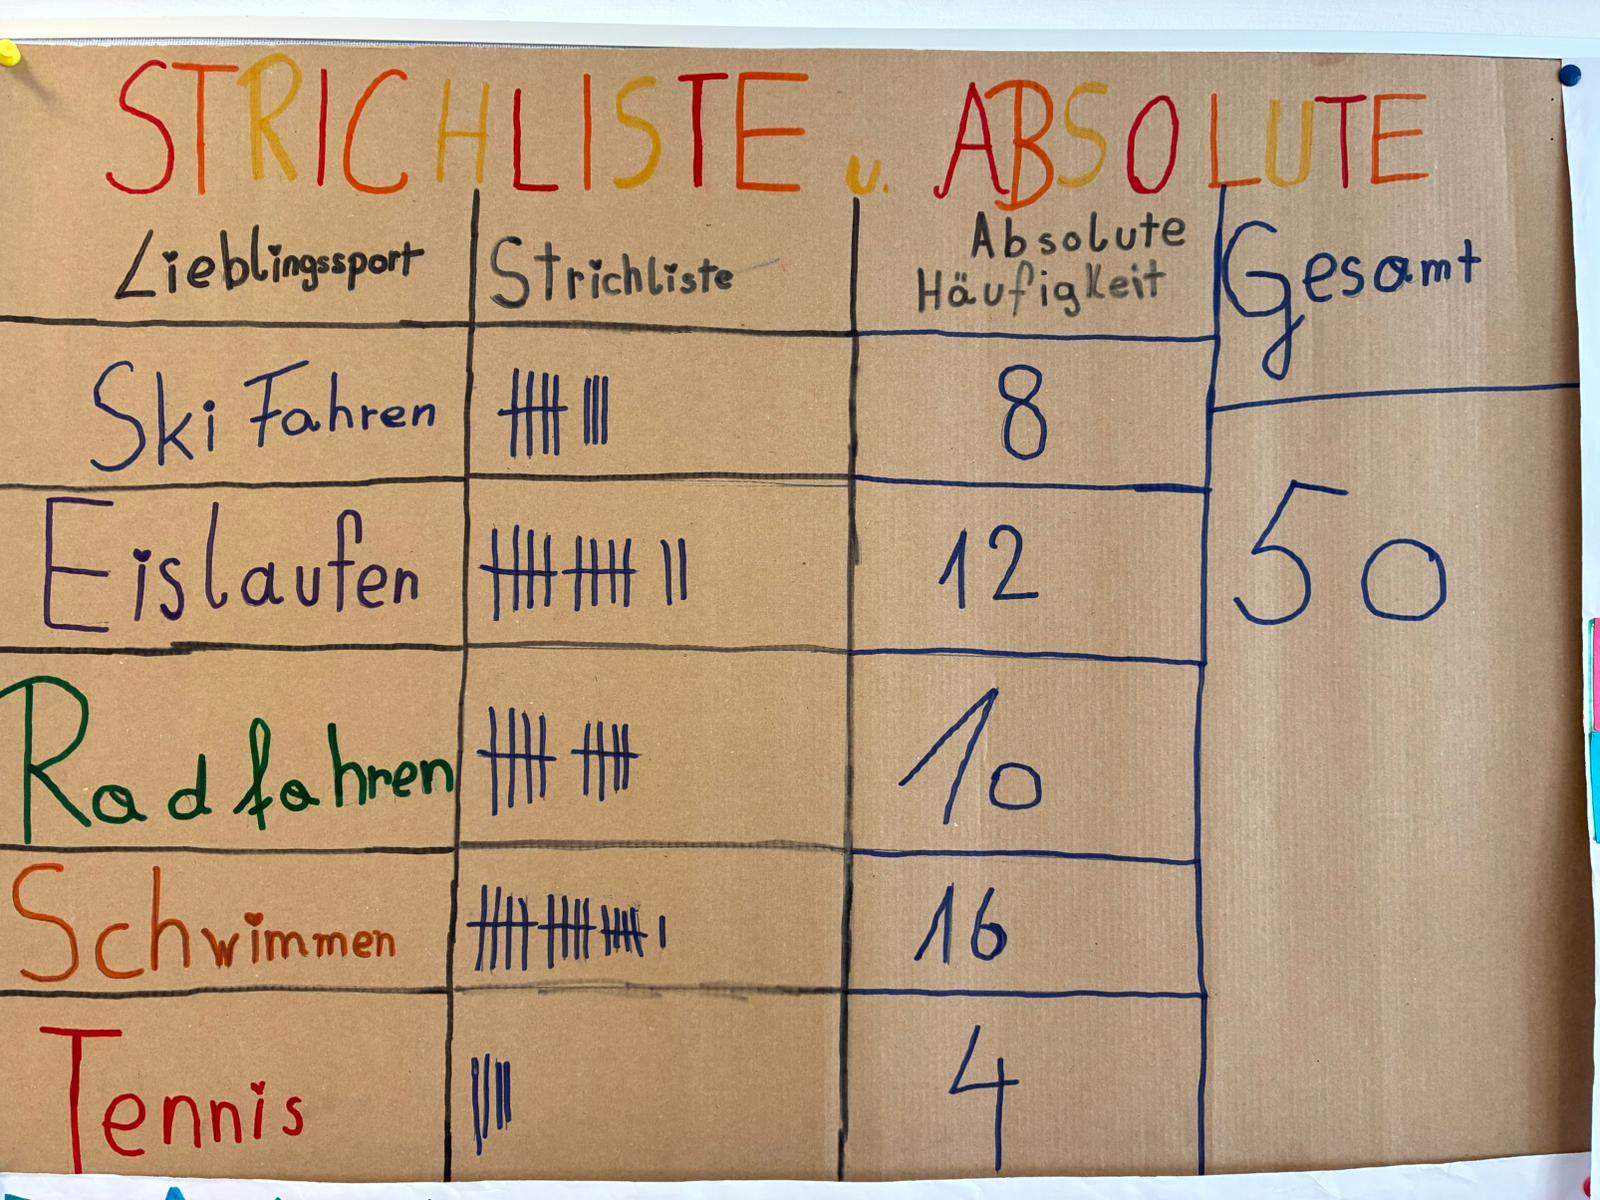 STRICHLISTE u. ABSOLUTE
Lieblingssport Strichliste Absolute Häufigkeit Gesamt
Ski Fahren 8
Eislaufen 12 50
Radfahren 10
Schwimmen 16
Tennis 4